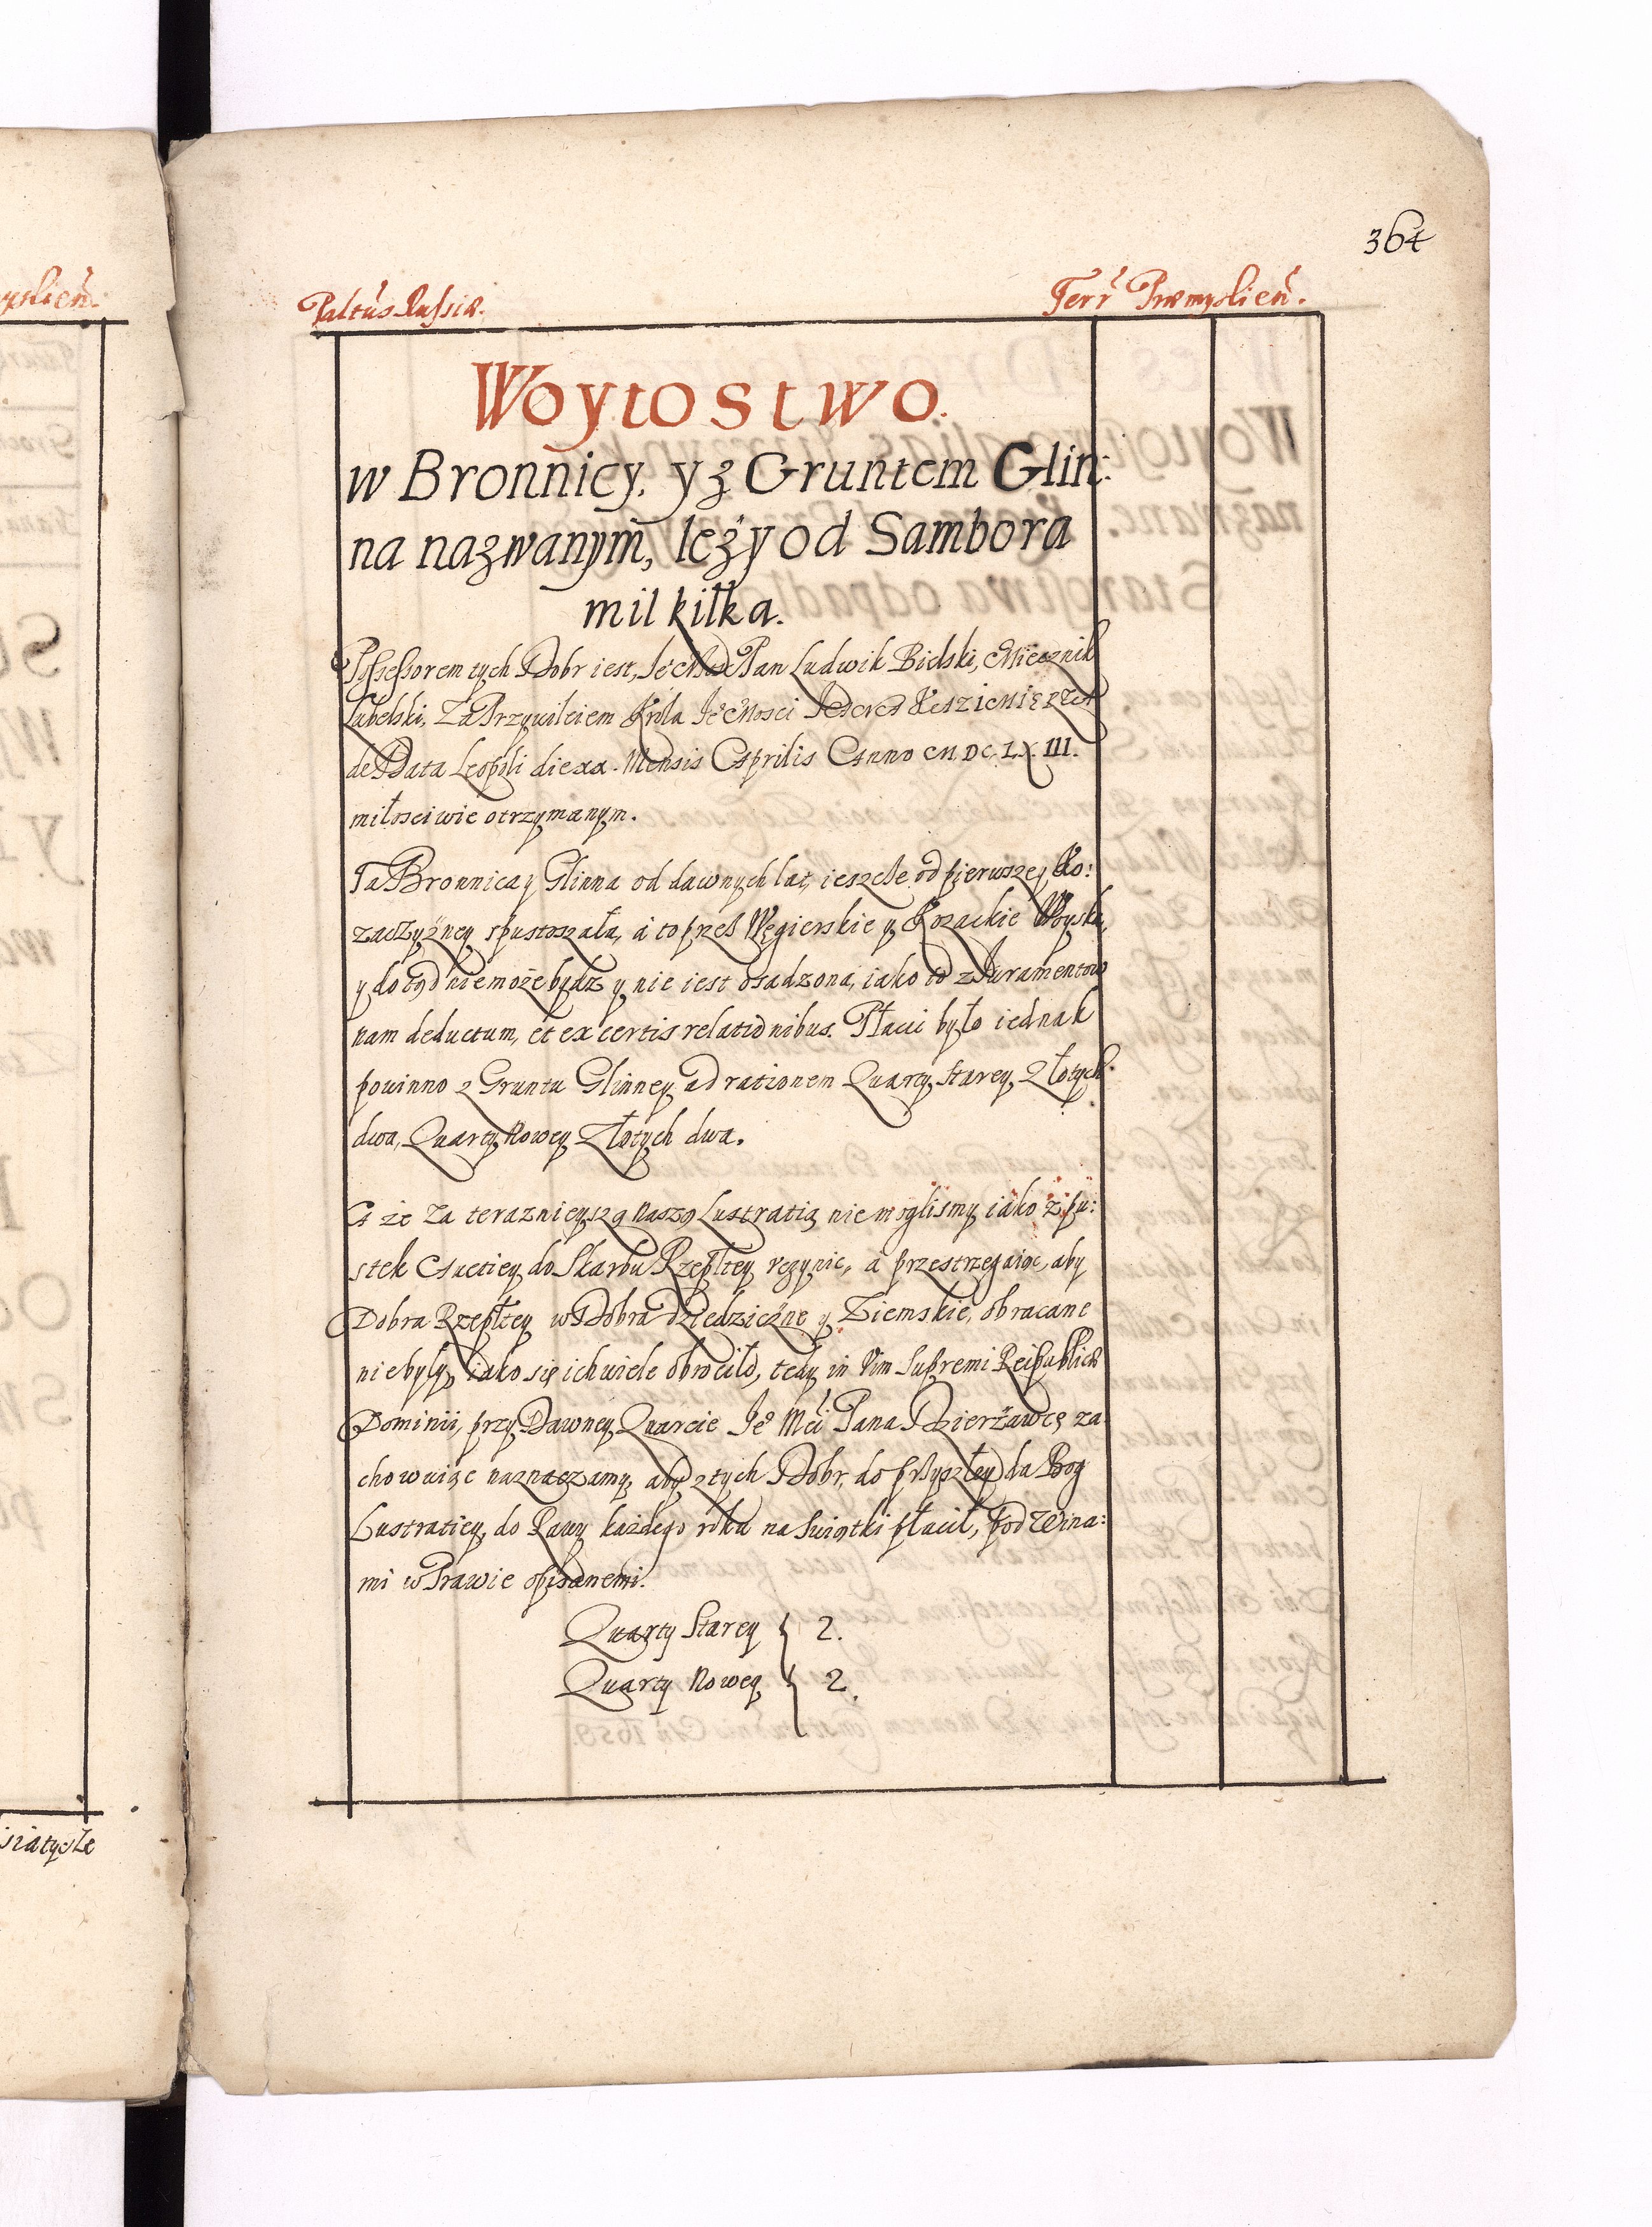 364
Palt'us Russiæ.
Terr' Præmyslien̄.
Woytostwo.
w Bronnicy, y z Gruntem Glin:
na nazwanym, leży od Sambora
mil kilka.
Possessorem tych Dobr iest, Je° Mść Pan Ludwik Bielski, Miecznik
Lubelski, Za Przywileiem Króla Je° Mosci
de Data Leopoli die xx. Mensis Aprilis Anno M. DC. LX. III.
miłosciwie otrzymanym.
Ta Bronnica y Glinna od dawnych lat, ieszcze od pierwszey Ko:
zaczyzney spustoszała, a to przez Węgierskie y Kozackie Woyska,
y dotąd nie może bydz y nie iest osadzona, iako to z Iuramentow
nam deductum, et ex certis relationibus. Płacić było iednak
powinno z Gruntu Glinney ad rationem Quarty starey Złotych
dwa, Quarty Nowey Złotych dwa.
A że za teraznieyszą Naszą Lustratią nie moglismy iako z pu:
stek Auctiey do Skarbu Rzepltey uczynic, a przestrzegaiąc, aby
Dobra Rzepltey w Dobra dziedziczne y Ziemskie, obracane
nie były, iako się ich wiele obrociło, tedy in Vim Supremi Reipublicæ
Dominii, przy Dawney Quarcie Je° Mći Pana Dzierżawcę za
chowuiąc naznaczamy, aby z tych Dobr, do przyszłey da Bog
Lustratiey, do Rawy każdego roku na Swiątki płacił, pod Wina:
mi w Prawie opisanemi.
Quarty Starey } 2.
Quarty Nowey } 2.